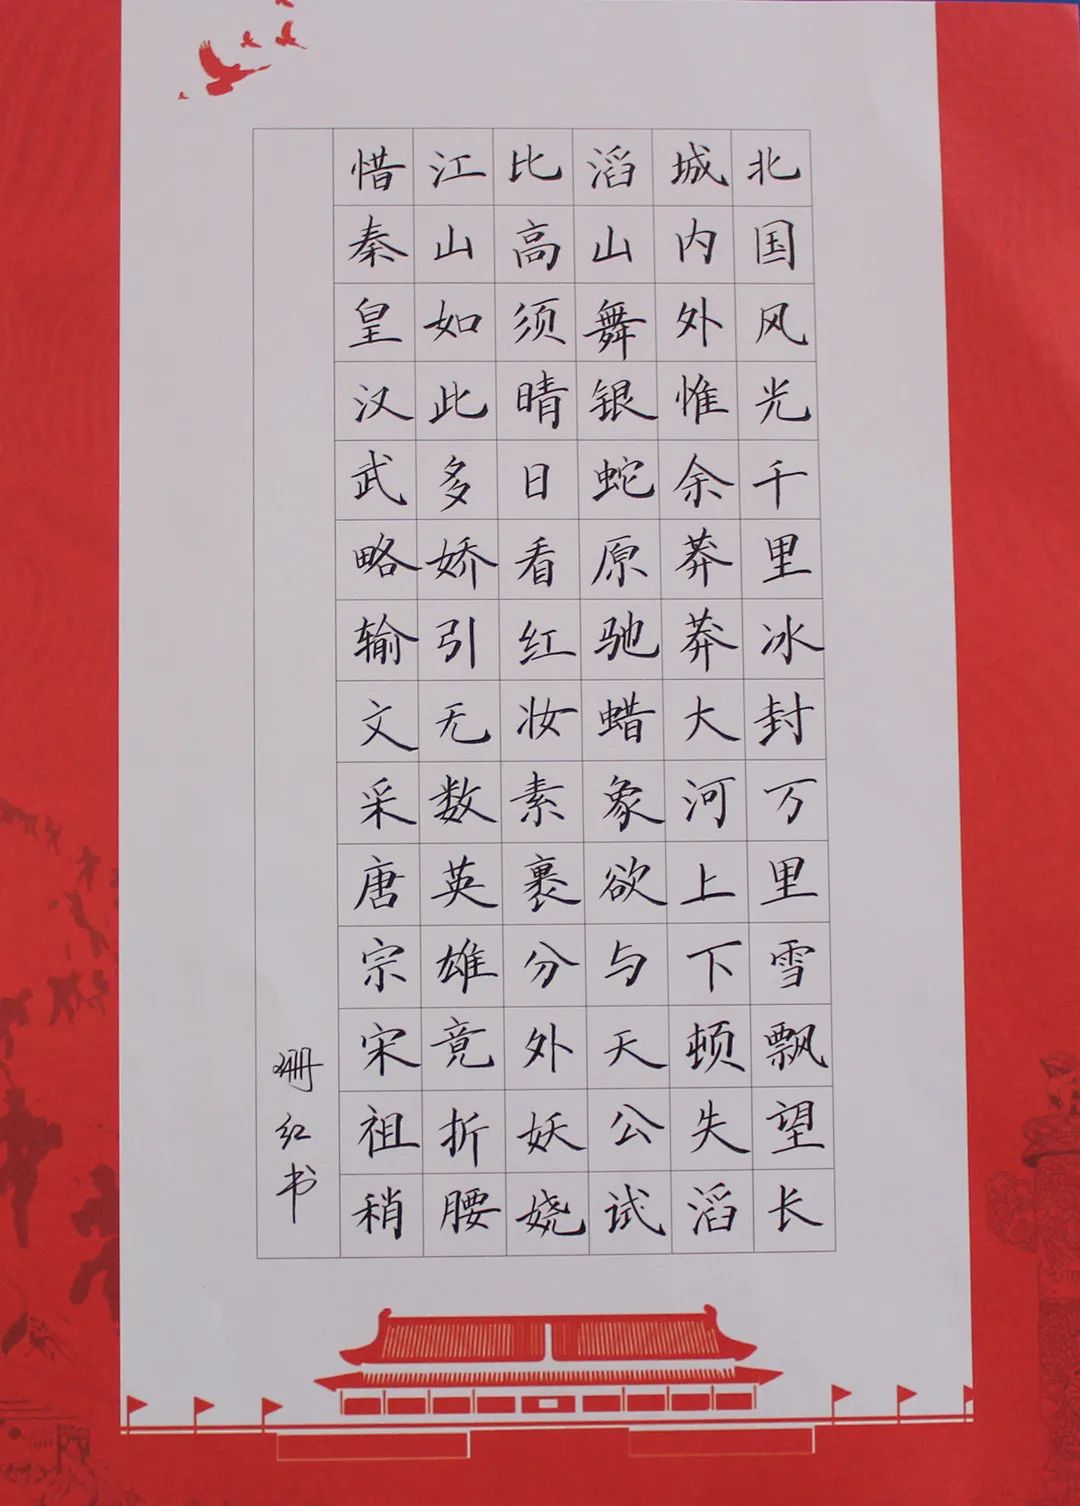 北国风光千里冰封万里雪飘望长
城内外惟余莽莽大河上下顿失滔
滔山舞银蛇原驰蜡象欲与天公试
比高须晴日看红妆素裹分外妖娆
江山如此多娇引无数英雄竟折腰
惜秦皇汉武略输文采唐宗宋祖稍
珊红书